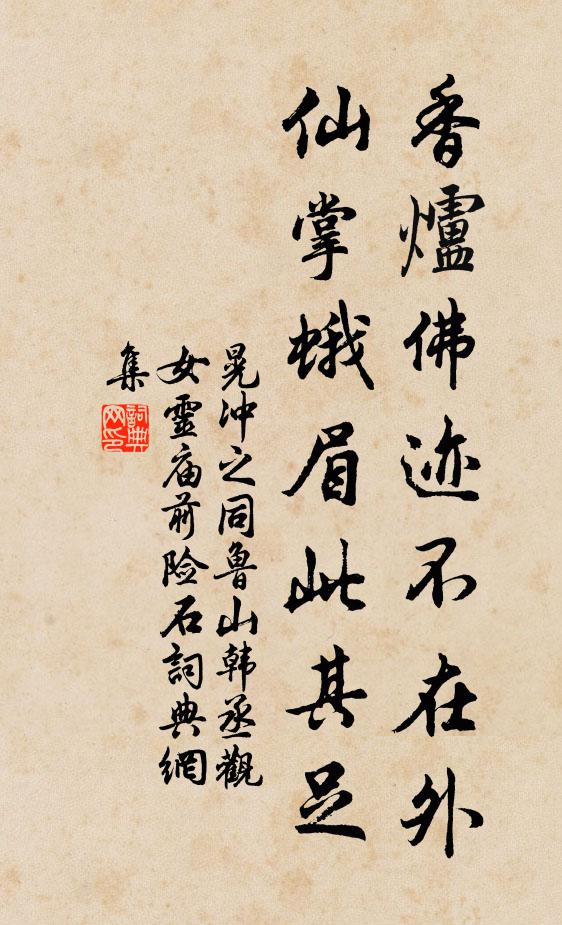 香爐佛迹不在外
仙掌蛾眉此其足
晁冲之同魯山韩丞觀
女靈庙前险石詞典網
集
詞典网印